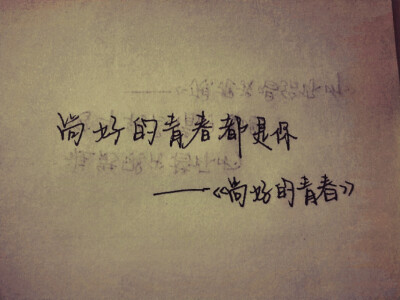 尚好的青春都是你
——《尚好的青春》